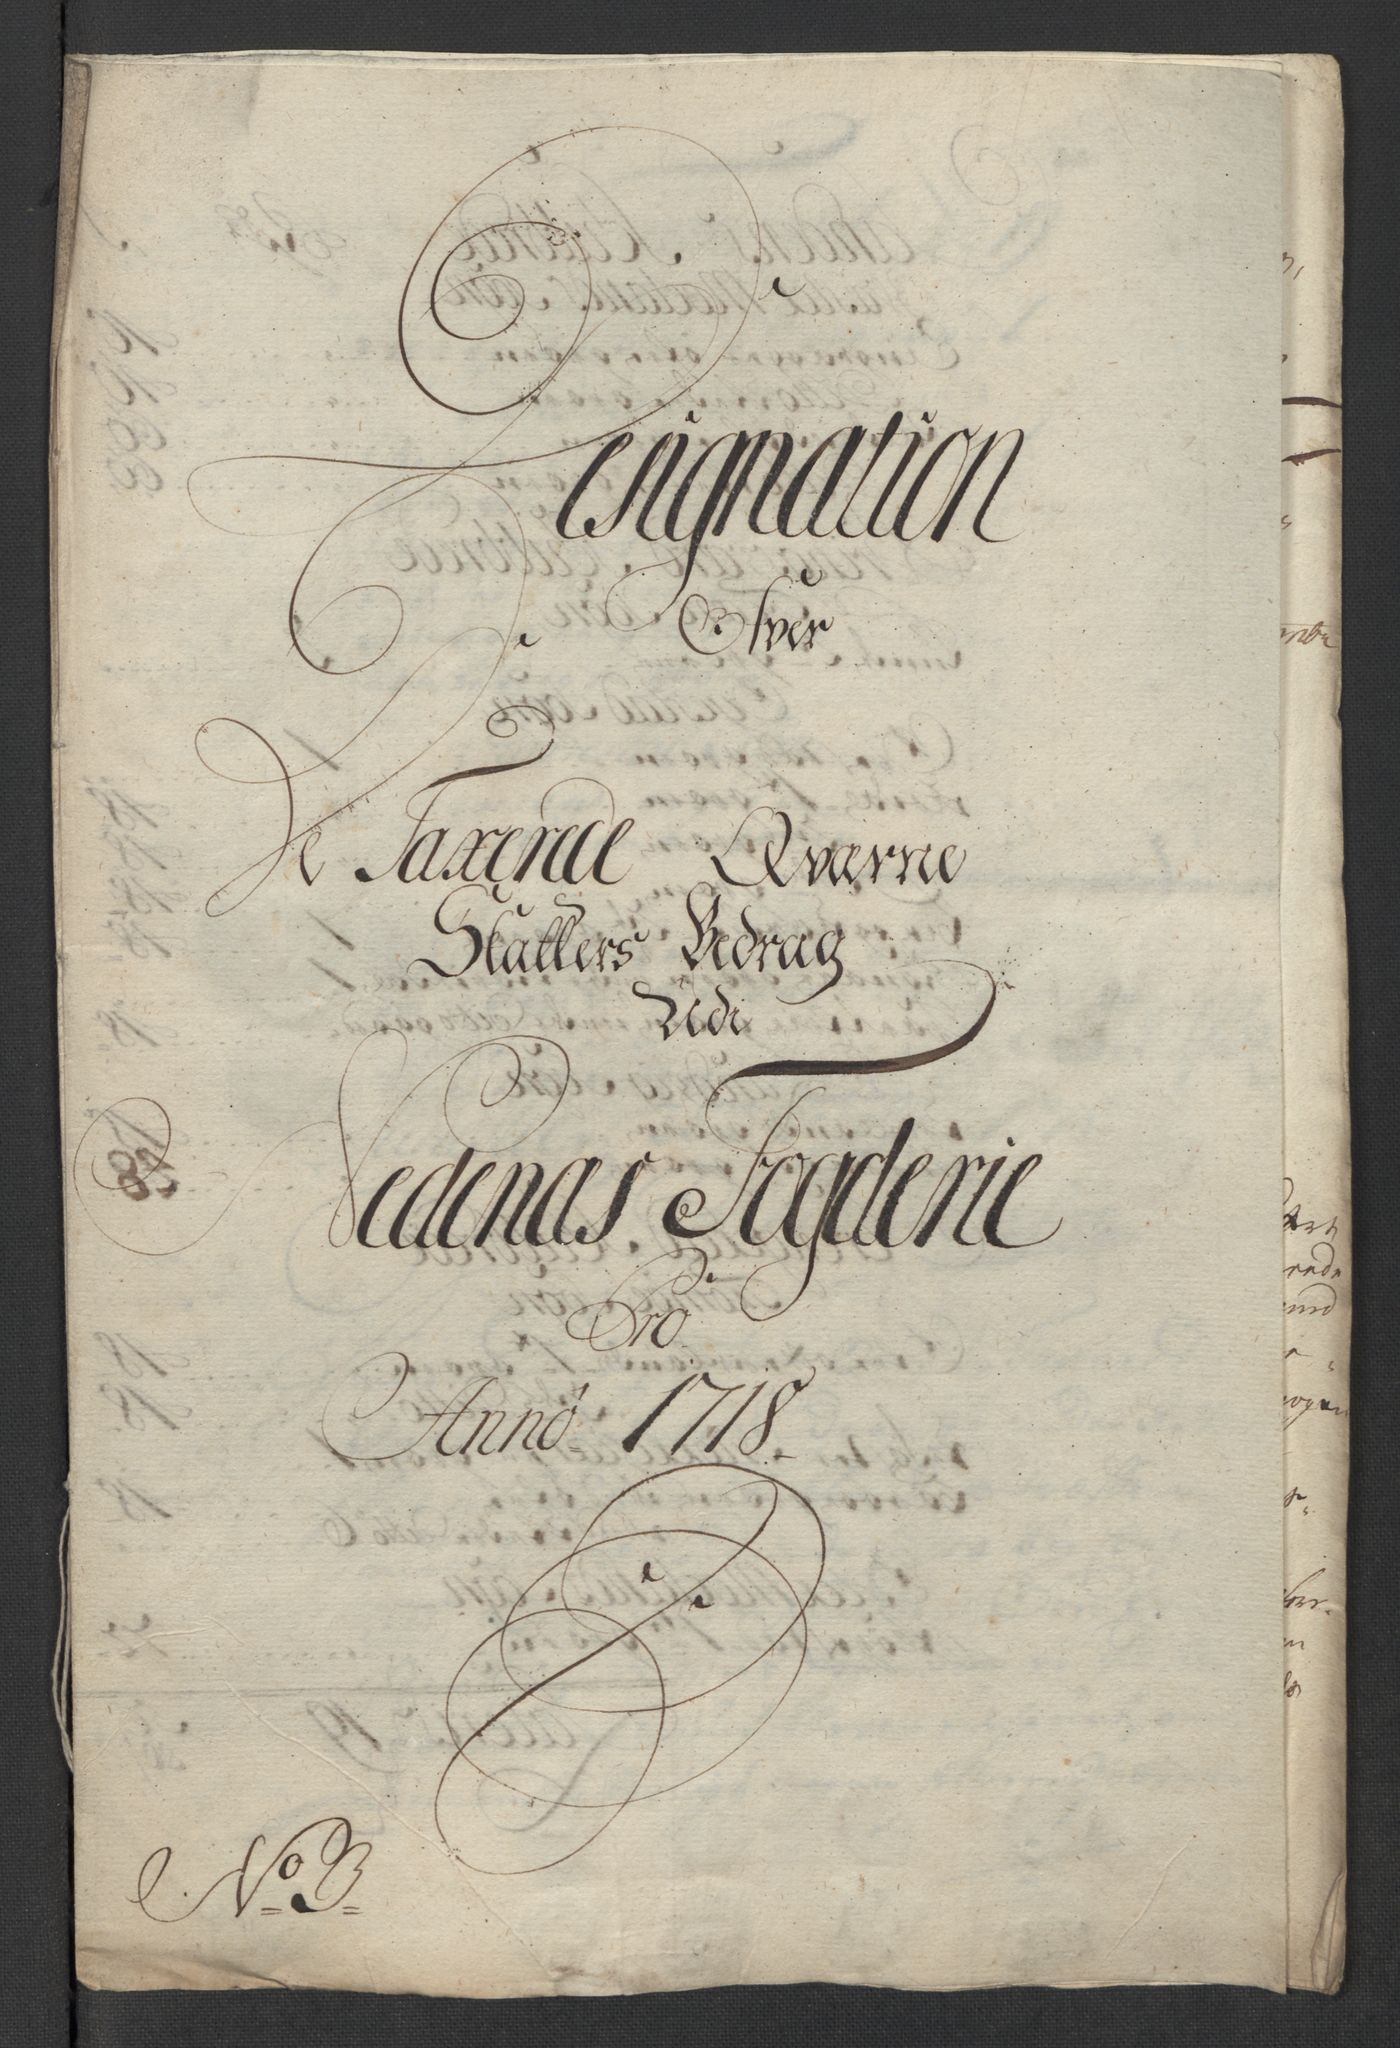 Designation
Over
De Taxerede Qværne
Skatters Bedrag
Udi
Nedenæs Fogderie
Pro
Anno 1718
No 3